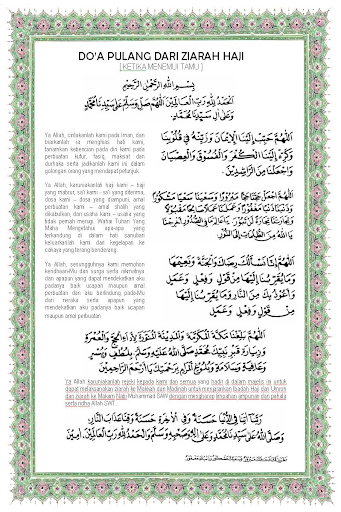 DO'A PULANG DARI ZIARAH HAJI
[ KETIKA MENEMUI TAMU ]
بِسْمِ اللهِ الرَّحْمٰنِ الرَّحِيْمِ
اَلْحَمْدُ لِلّٰهِ رَبِّ الْعَالَمِيْنَ اَللّٰهُمَّ صَلِّ وَسَلِّمْ عَلٰى سَيِّدِنَا مُحَمَّدٍ
وَعَلٰى اٰلِ سَيِّدِنَا مُحَمَّدٍ
Ya Allah, cintakanlah kami pada Iman, dan
biarkanlah ia menghias hati kami,
tanamkan kebencian pada diri kami pada
perbuatan kufur, fasiq, maksiat dan
durhaka serta jadikanlah kami ini dalam
golongan orang yang mendapat petunjuk.
اَللّٰهُمَّ حَبِّبْ اِلَيْنَا الْاِيْمَانَ وَزَيِّنْهُ فِيْ قُلُوْبِنَا
وَكَرِّهْ اِلَيْنَا الْكُفْرَ وَالْفُسُوْقَ وَالْعِصْيَانَ
وَاجْعَلْنَا مِنَ الرَّاشِدِيْنَ
Ya Allah, karuniakanlah haji kami – haji
yang mabrur, sa'i kami - sa'i yang diterima,
dosa kami – dosa yang diampuni, amal
perbuatan kami – amal shalih yang
dikabulkan, dan usaha kami – usaha yang
tidak pernah merugi. Wahai Tuhan Yang
Maha Mengetahui apa-apa yang
terkandung di dalam hati sanubari
keluarkanlah kami dari kegelapan ke
cahaya yang terang benderang.
اَللّٰهُمَّ اجْعَلْ حَجَّنَا حَجًّا مَبْرُوْرًا وَسَعْيَنَا سَعْيًا مَشْكُوْرًا
وَذَنْبَنَا ذَنْبًا مَغْفُوْرًا وَعَمَلَنَا عَمَلًا صَالِحًا مَقْبُوْلًا
وَتِجَارَتَنَا تِجَارَةً لَنْ تَبُوْرَ يَا عَالِمَ مَا فِي الصُّدُوْرِ اَخْرِجْنَا
يَا اَللهُ مِنَ الظُّلُمَاتِ اِلَى النُّوْرِ
Ya Allah, sesungguhnya kami memohon
keridhaanMu dan surga serta nikmatnya
dan apapun yang dapat mendekatkan aku
padanya baik ucapan maupun amal
perbuatan dan aku berlindung padaMu
dari neraka serta apapun yang
mendekatkan aku padanya baik ucapan
maupun amal perbuatan.
اَللّٰهُمَّ اِنَّا نَسْأَلُكَ رِضَاكَ وَالْجَنَّةَ وَنَعِيْمَهَا
وَمَا يُقَرِّبُنَا اِلَيْهَا مِنْ قَوْلٍ وَفِعْلٍ وَعَمَلٍ
وَاَعُوْذُ بِكَ مِنَ النَّارِ وَمَا يُقَرِّبُنَا اِلَيْهَا
مِنْ قَوْلٍ وَفِعْلٍ وَعَمَلٍ
اَللّٰهُمَّ بَلِّغْنَا مَكَّةَ الْمُكَرَّمَةَ وَالْمَدِيْنَةَ الْمُنَوَّرَةَ لِاَدَاءِ الْحَجِّ وَالْعُمْرَةِ
وَزِيَارَةِ قَبْرِ نَبِيِّكَ مُحَمَّدٍ صَلَّى اللهُ عَلَيْهِ وَسَلَّمَ بِلُطْفٍ وَيُسْرٍ
وَعَافِيَةٍ وَسَلَامَةٍ وَبُلُوْغِ الْمَرَامِ بِرَحْمَتِكَ يَا اَرْحَمَ الرَّاحِمِيْنَ
Ya Allah karuniakanlah rejeki kepada kami dan semua yang hadir di dalam majelis ini untuk
dapat melaksanakan ziarah ke Makkah dan Madinah untuk mengerjakan ibadah Haji dan Umroh
dan ziarah ke Makam Nabi Muhammad SAW dengan mengharap limpahan ampunan dan pahala
serta ridha Allah SWT.
رَبَّنَا اٰتِنَا فِي الدُّنْيَا حَسَنَةً وَفِي الْاٰخِرَةِ حَسَنَةً وَقِنَا عَذَابَ النَّارِ
وَصَلَّى اللهُ عَلٰى سَيِّدِنَا مُحَمَّدٍ وَعَلٰى اٰلِهِ وَصَحْبِهِ وَسَلَّمَ وَالْحَمْدُ لِلّٰهِ رَبِّ الْعَالَمِيْنَ، اٰمِيْنَ